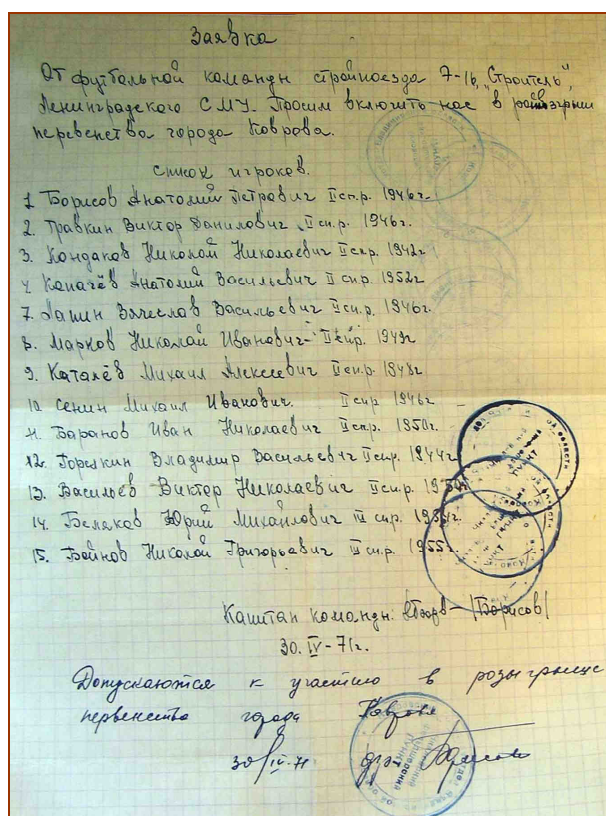 Заявка
От футбольной команды стройпоезда 7-16 „Строитель",
Ленинградского СМУ. Просим включить нас в розыгрыш
первенства города Коврова.
список игроков.
1. Борисов Анатолий Петрович II сп.р. 1946г.
2. Травкин Виктор Данилович II сп.р. 1946г.
3. Кондаков Николай Николаевич II сп.р. 1942г
4. Капачёв Анатолий Васильевич II сп.р. 1952г.
7. Лапин Вячеслав Васильевич II сп.р. 1946г.
8. Марков Николай Иванович II сп.р. 1949г
9. Каталёв Михаил Алексеевич II сп.р. 1948г.
10. Сенин Михаил Иванович II сп.р 1946г
11. Баранов Иван Николаевич II сп.р. 1950г.
12. Горшкин Владимир Васильевич II сп.р. 1944г.
13. Васильев Виктор Николаевич II сп.р. 1950г.
14. Беляков Юрий Михайлович III сп.р.
15. Войнов Николай Григорьевич III сп.р. 1955г.
Капитан команды: /Борисов/
30.IV-71г.
Допускаются к участию в розыгрыше
первенства города Коврова
30/IV-71
ПУНКТ